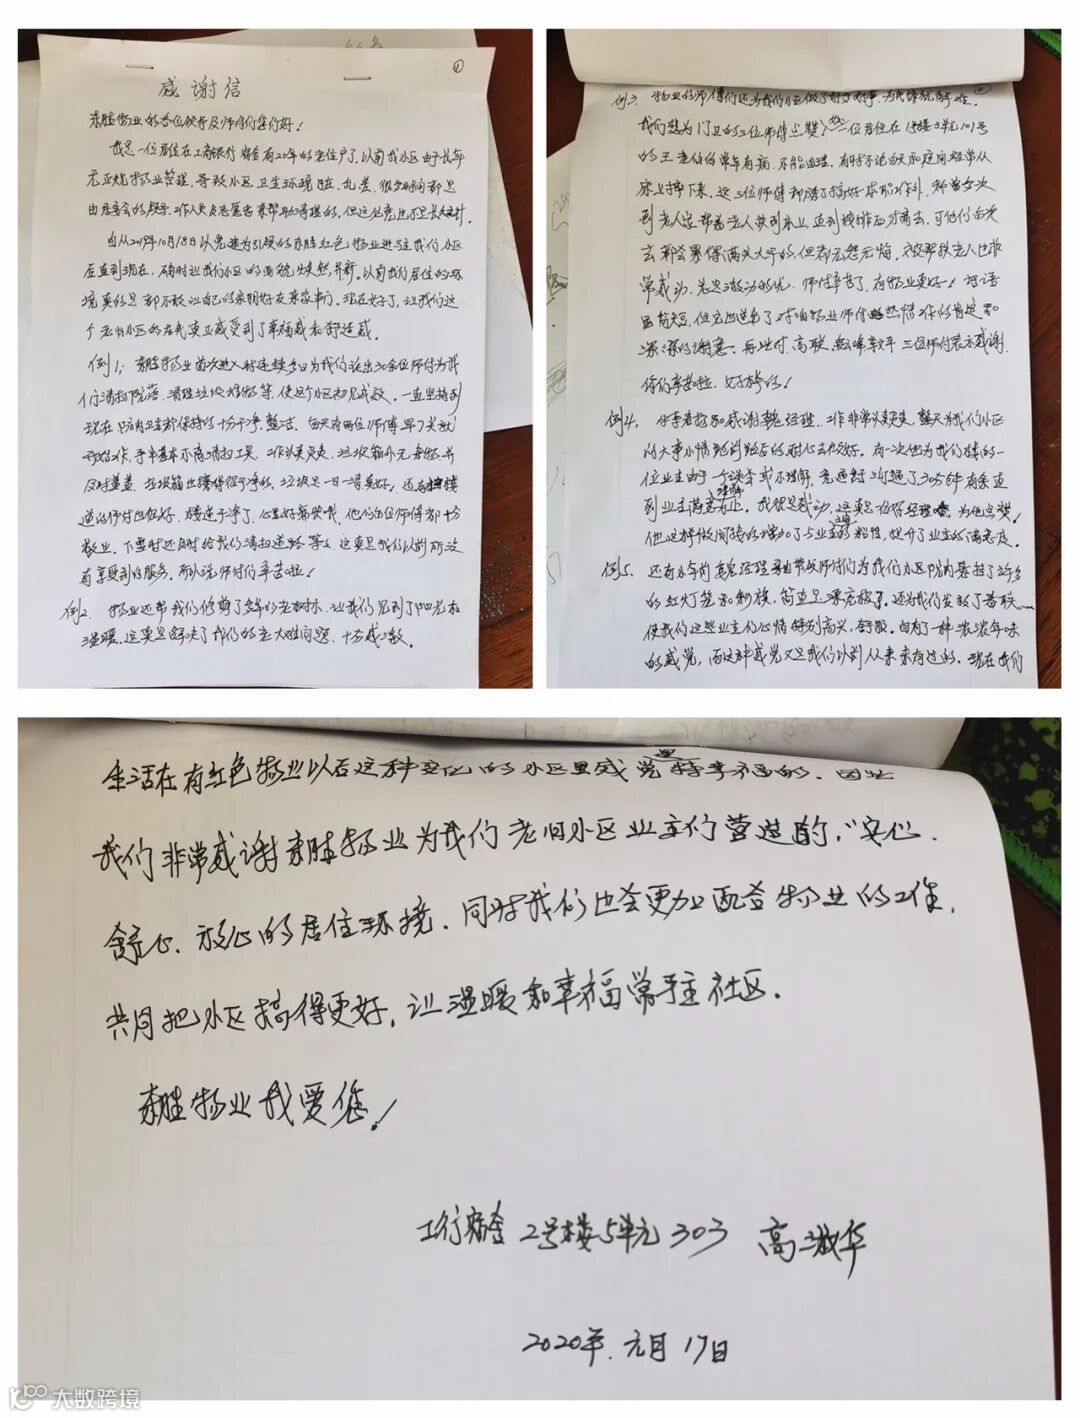 ①
感谢信
东胜物业的各位领导及师傅们您们好!
我是一位居住在工商银行宿舍有20年的老住户了,以前我小区由于长年
无正规物业管理,导致小区卫生环境脏、乱、差,很多时间都是
由居委会的领导、工作人员及志愿者来帮助清理的,但这必竟也不是长久之计
自从2019年10月18日以党建为引领的东胜红色物业进驻我们小区
后直到现在,确时让我们小区的面貌焕然一新。以前我们居住的环
境真的是都不敢让自己的亲朋好友来家串门。现在好了,让我们这
个老旧小区的居民真正感受到了幸福感和舒适感。
例1:东胜物业首次进入时连续多日为我们派出20余位师傅为我
们清扫院落、清理垃圾杂物等,使这个小区初见成效。一直坚持到
现在院内卫生都保持的十分干净、整洁。每天有两位师傅早7点就
开始工作,手中基本不离清扫工具,工作认真负责,垃圾箱外无
及时覆盖,垃圾箱也擦得很干净的,垃圾是一日一清真好。还有楼
道的师付也很好,楼道干净了,心里好痛快哦,他们的每位师傅都十分
敬业。下雪时还及时给我们清扫道路等。这真是我们以前所没
有享受到的服务,所以说师付们辛苦啦!
例2.物业还帮我们修剪了多年的老树木,让我们见到了阳光和
温暖,这真是解决了我们的老大难问题,十分感激。
例3.物业的师傅们还为我们小区做了好多好事,为民排忧解难。
我们想为门卫的三位师傅点赞,一位居住在1号楼3单元101号
的王老伯伯常年有病,不能自理,有时不论白天和夜间经常从
床上掉下来,这三位师傅都除了搞好本职工作外,都曾多次
到老人家帮着老人扶到床上,直到安排后才离去,可他们每次
去都会累得满头大汗的,但都无怨无悔,被帮扶老人也非
常感动,总是激动的说:师付辛苦了,有物业真好!话语
虽简短,但它也道出了对咱物业师付热情工作的肯定和
深深的谢意。再此对、高联、三位师付表示感谢
你们辛苦啦,好样的!
例4.非常感谢魏经理,工作非常认真负责,整天为我们小区
的大事小情跑前跑后的耐心去办好。有一次他为我们楼的一
位业主由于一个误会或不理解,竟通过沟通了30分钟有余直
到业主满意理解为止。我很是感动,这真是位好经理,为他点赞!
他这样做间接的增加了与业主的粘性,提升了业主的满意度。
例5.还有小年前魏经理亲自带领师付们为我们小区院内悬挂了许多
的红灯笼和彩旗,简直是漂亮极了。还为我们发放了春联
使我们这些业主们心情特别高兴,舒服。自有了一种浓浓年味
的感觉,而这种感觉又是我们以前从来未有过的。现在我们
生活在有红色物业以后这种变化的小区里感觉是特幸福的,因此
我们非常感谢东胜物业为我们老旧小区业主们营造的,"安心、
舒心、放心的居住环境,同时我们也会更加配合物业的工作,
共同把小区搞得更好,让温暖和幸福常驻社区。
东胜物业我爱您!
工行宿舍2号楼5单元303 高淑华
2020年元月17日
大数跨境